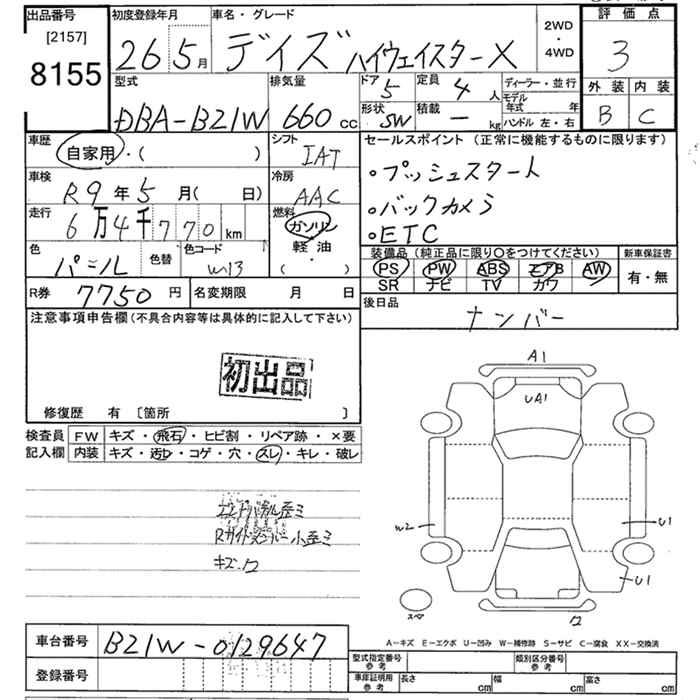 出品番号
[2157]
8155
初度登録年月
26 5月
車名・グレード
デイズ ハイウェイスターX
2WD
・
4WD
評価点
3
外装 内装
B C
型式
DBA-B21W
排気量
660cc
ドア
5
定員
4人
形状
SW
積載
ー kg
ディーラー・並行
モデル
年式 年
ハンドル 左・右
車歴
自家用・( )
シフト
IAT
セールスポイント (正常に機能するものに限ります)
・プッシュスタート
・バックカメラ
・ETC
車検
R9年5月( 日)
冷房
AAC
走行
6万4千770km
燃料
ガソリン
軽油
( ・ )
色
パール
色替
色コード
W13
装備品 (純正品に限り〇をつけてください)
PS PW ABS エアB AW
SR ナビ TV カワ
新車保証書
有・無
R券 7750円
名変期限 月 日
後日品
ナンバー
注意事項申告欄(不具合内容等は具体的に記入して下さい)
初出品
修復歴 有 [箇所 ]
検査員
記入欄
FW キズ・飛石・ヒビ割・リペア跡・×要
内装 キズ・汚レ・コゲ・穴・スレ・キレ・破レ
エンドパネル歪ミ
小歪ミ
キズ.ワ
A1
UA1
W2
U1
U1
スペア
ワ
A-キズ E-エクボ U-凹み W-補修跡 S-サビ C-腐食 XX-交換済
車台番号
B21W-0129647
登録番号
型式指定番号
参考
類別区分番号
参考
車庫証明用
参考
長さ cm
幅 cm
高さ cm